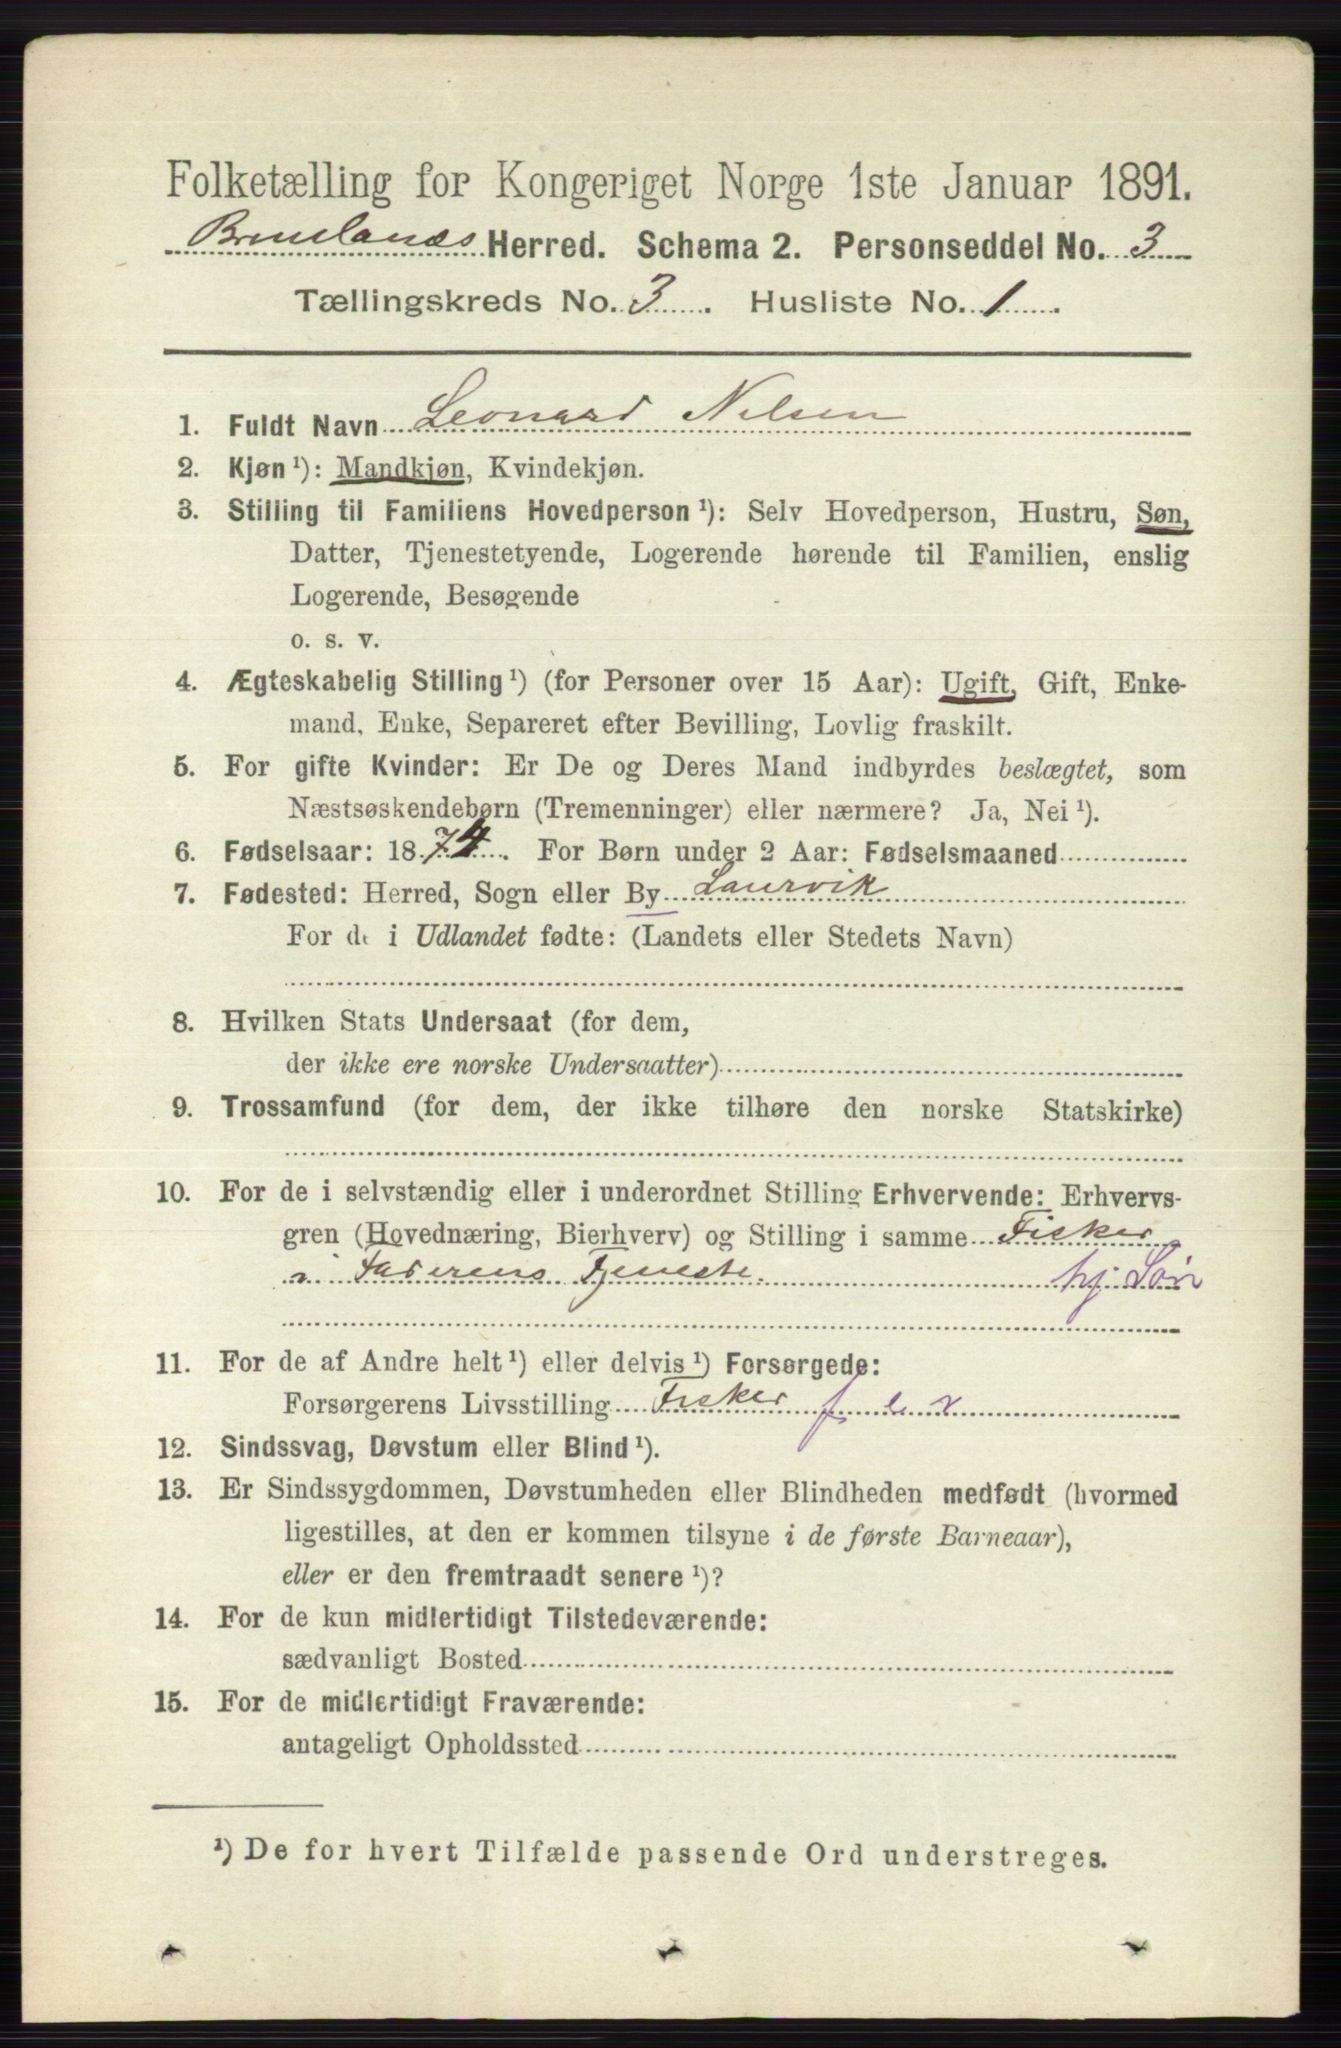 Folketælling for Kongeriget Norge 1ste Januar 1891.
Brunlanæs Herred. Schema 2. Personseddel No. 3
Tællingskreds No. 3. Husliste No. 1.
1. Fuldt Navn Leonard Nilsen
2. Kjøn¹): Mandkjøn, Kvindekjøn.
3. Stilling til Familiens Hovedperson¹): Selv Hovedperson, Hustru, Søn,
Datter, Tjenestetyende, Logerende hørende til Familien, enslig
Logerende, Besøgende
o. s. v.
4. Ægteskabelig Stilling¹) (for Personer over 15 Aar): Ugift, Gift, Enke-
mand, Enke, Separeret efter Bevilling, Lovlig fraskilt.
5. For gifte Kvinder: Er De og Deres Mand indbyrdes beslægtet, som
Næstsøskendebørn (Tremenninger) eller nærmere? Ja, Nei¹).
6. Fødselsaar: 1874. For Børn under 2 Aar: Fødselsmaaned
7. Fødested: Herred, Sogn eller By Laurvik
For de i Udlandet fødte: (Landets eller Stedets Navn)
8. Hvilken Stats Undersaat (for dem,
der ikke ere norske Undersaatter)
9. Trossamfund (for dem, der ikke tilhøre den norske Statskirke)
10. For de i selvstændig eller i underordnet Stilling Erhvervende: Erhvervs-
gren (Hovednæring, Bierhverv) og Stilling i samme Fisker
i Faderens Tjeneste. hj Søn
11. For de af Andre helt¹) eller delvis¹) Forsørgede:
Forsørgerens Livsstilling Fisker f e x
12. Sindssvag, Døvstum eller Blind¹).
13. Er Sindssygdommen, Døvstumheden eller Blindheden medfødt (hvormed
ligestilles, at den er kommen tilsyne i de første Barneaar),
eller er den fremtraadt senere¹)?
14. For de kun midlertidigt Tilstedeværende:
sædvanligt Bosted
15. For de midlertidigt Fraværende:
antageligt Opholdssted
¹) De for hvert Tilfælde passende Ord understreges.